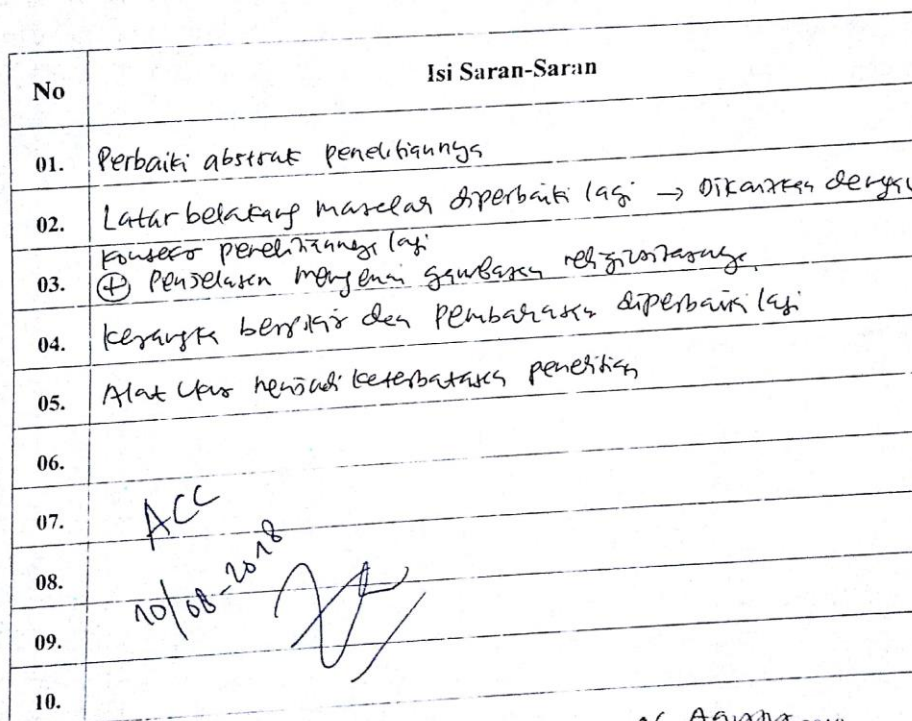 No Isi Saran-Saran
01. Perbaiki abstrak penelitiannya
02. Latar belakang masalah diperbaiki lagi → Dikaitkan dengan
konsep penelitiannya lagi
03. (+) Penjelasan mengenai gambaran religiusitasnya
04. Kerangka berpikir dan Pembahasan diperbaiki lagi
05. Alat Ukur menjadi keterbatasan penelitian
06.
07. ACC
08. 10/08-2018
09.
10.